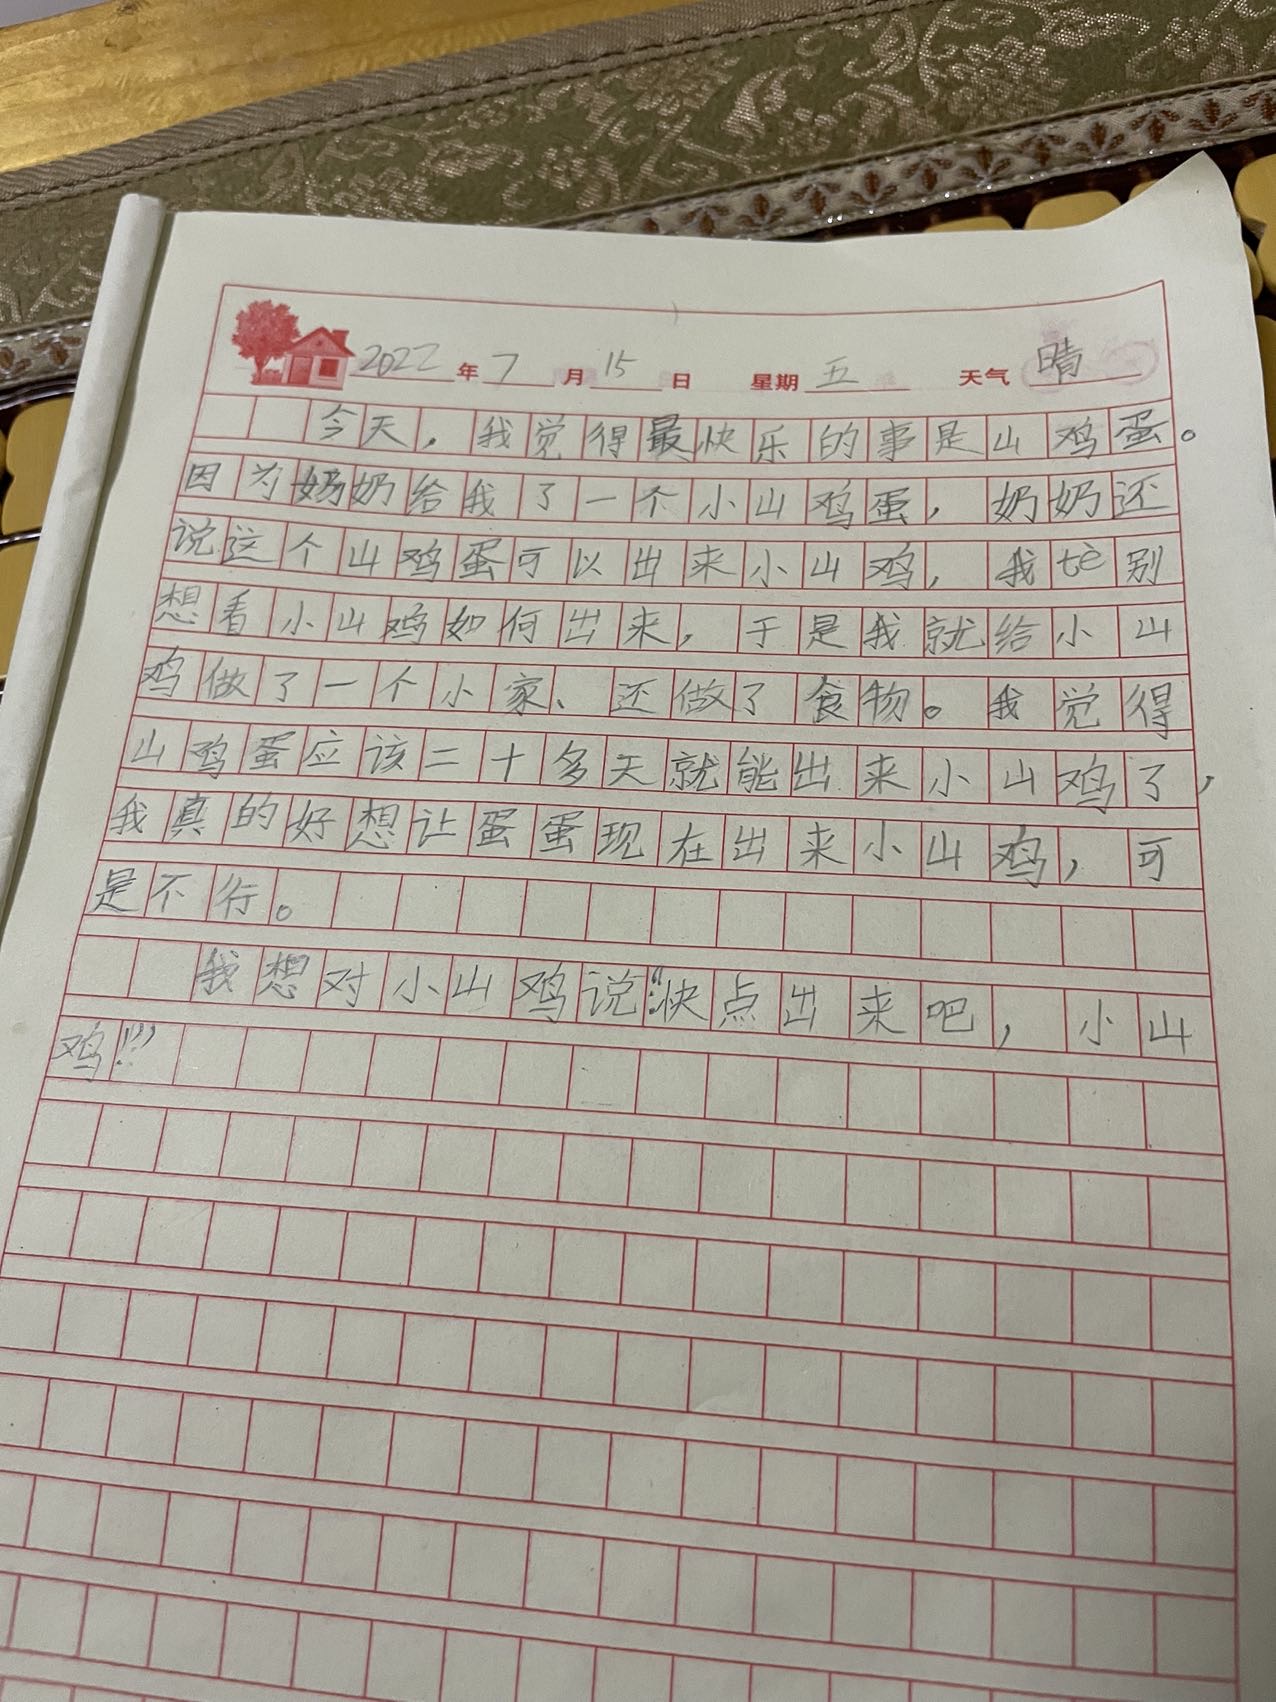 2022年7月15日 星期五 天气晴
今天，我觉得最快乐的事是山鸡蛋。
因为奶奶给我了一个小山鸡蛋，奶奶还
说这个山鸡蛋可以出来小山鸡，我tè别
想看小山鸡如何出来，于是我就给小山
鸡做了一个小家、还做了食物。我觉得
山鸡蛋应该二十多天就能出来小山鸡了，
我真的好想让蛋蛋现在出来小山鸡，可
是不行。
我想对小山鸡说：“快点出来吧，小山
鸡！”